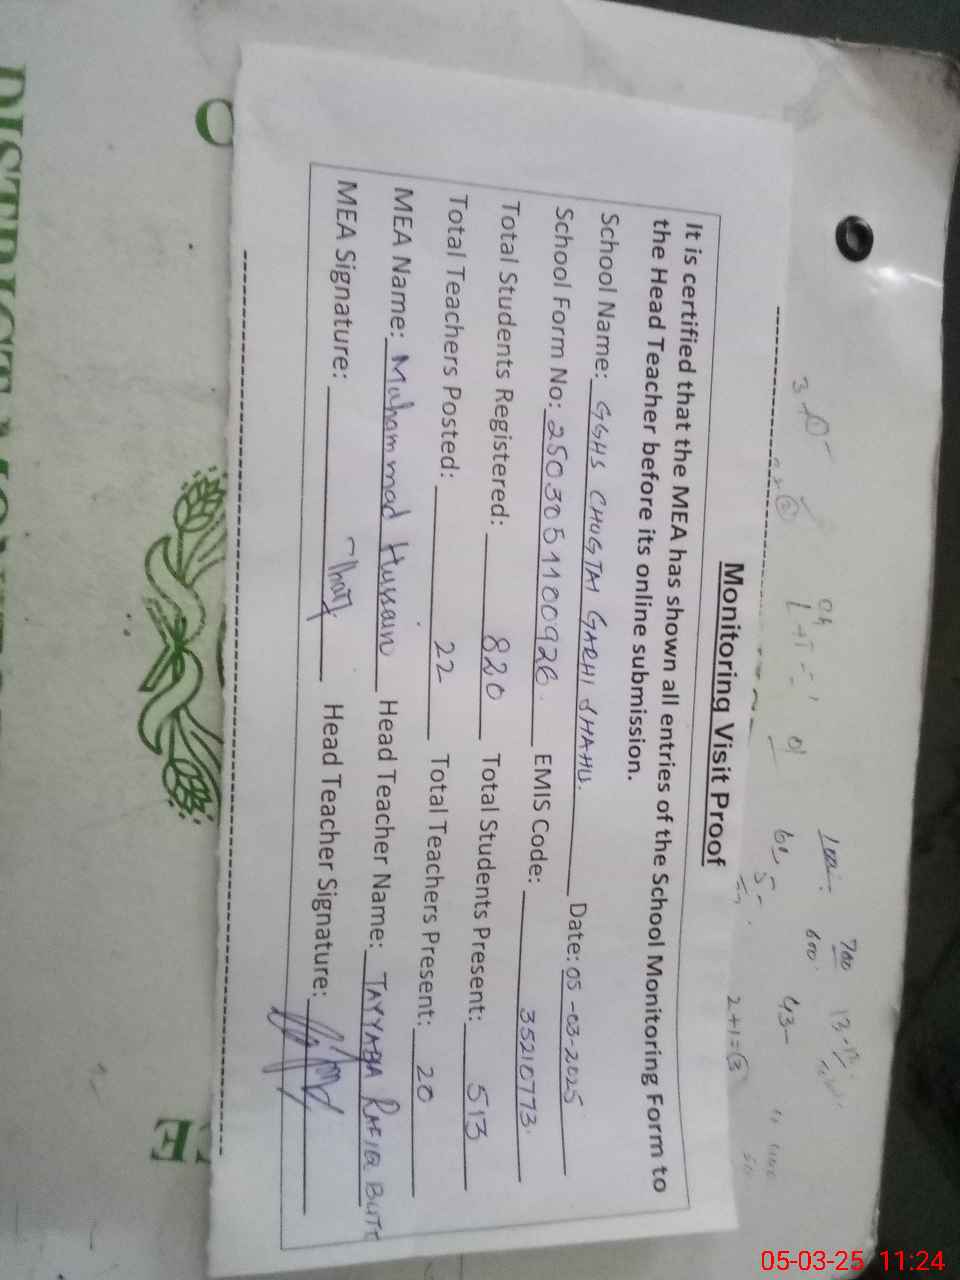 Monitoring Visit Proof
It is certified that the MEA has shown all entries of the School Monitoring Form to
the Head Teacher before its online submission.
School Name: GGHS CHUGTAI GARHI SHAHU. Date: 05-03-2025
School Form No: 2503051100926. EMIS Code: 35210773.
Total Students Registered: 820 Total Students Present: 513
Total Teachers Posted: 22 Total Teachers Present: 20
MEA Name: Muhammad Hussain Head Teacher Name: TAYYABA RAFIQ BUTT
MEA Signature: Head Teacher Signature:
700
600
43-
2+1=3
05-03-25 11:24